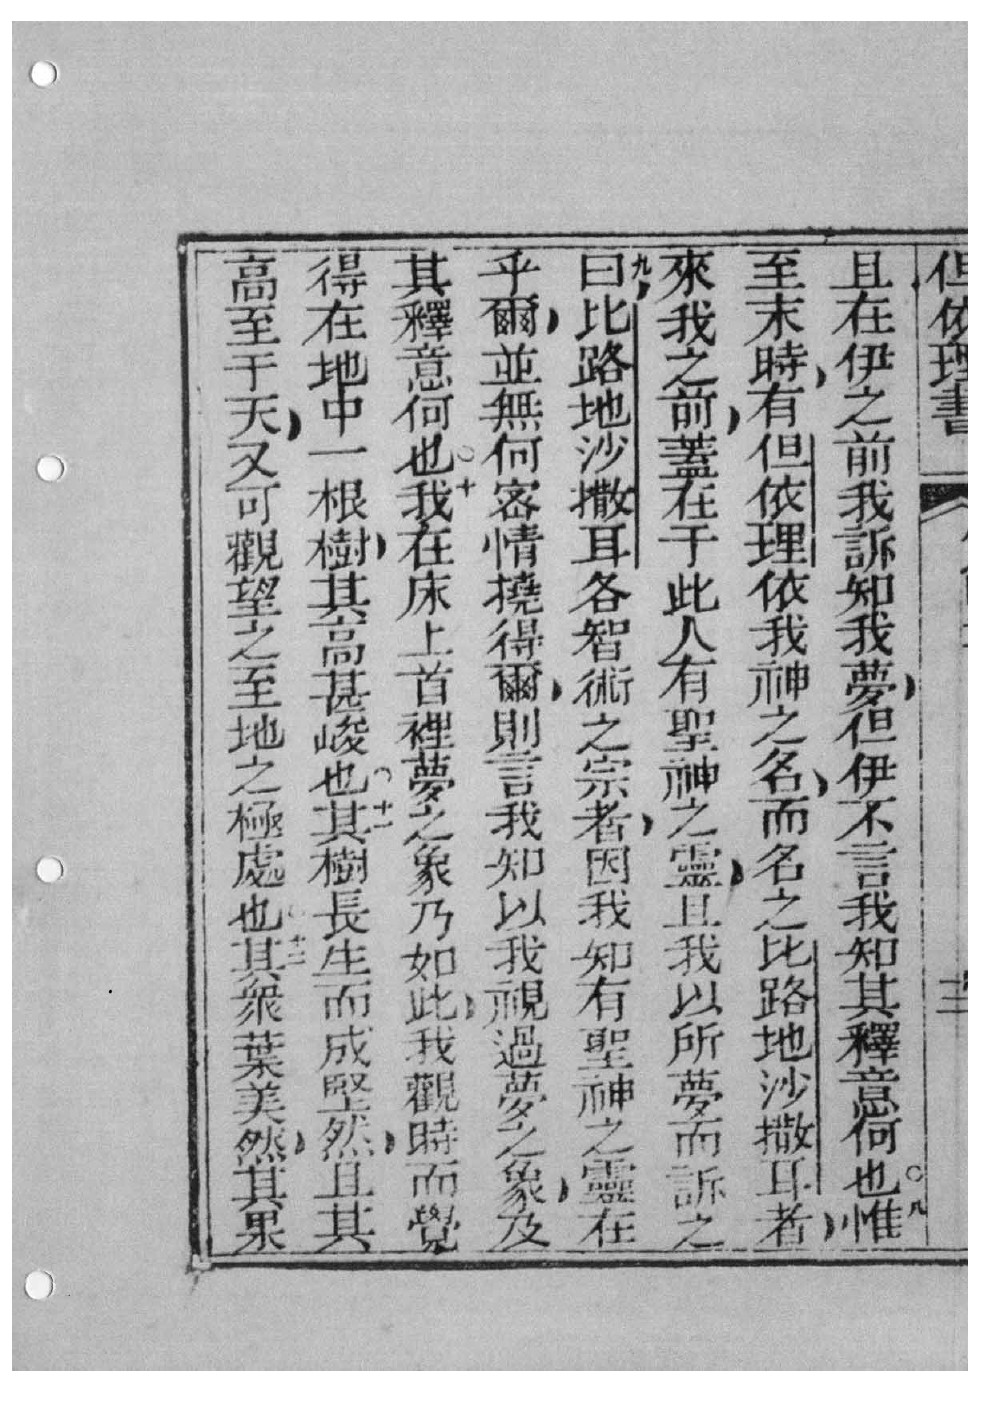 但依理書
且在伊之前我訴知我夢但伊不言我知其釋意何也○八惟
至末時有但依理依我神之名而名之比路地沙撒耳者
來我之前蓋在于此人有聖神之靈且我以所夢而訴之
九曰比路地沙撒耳各智術之宗者因我知有聖神之靈在
乎爾並無何密情撓得爾則言我知以我視過夢之象及
其釋意何也○十我在床上首裡夢之象乃如此我觀時而覺
得在地中一根樹其高甚峻也○十一其樹長生而成堅然且其
高至于天又可觀望之至地之極處也○十二其衆葉美然其果